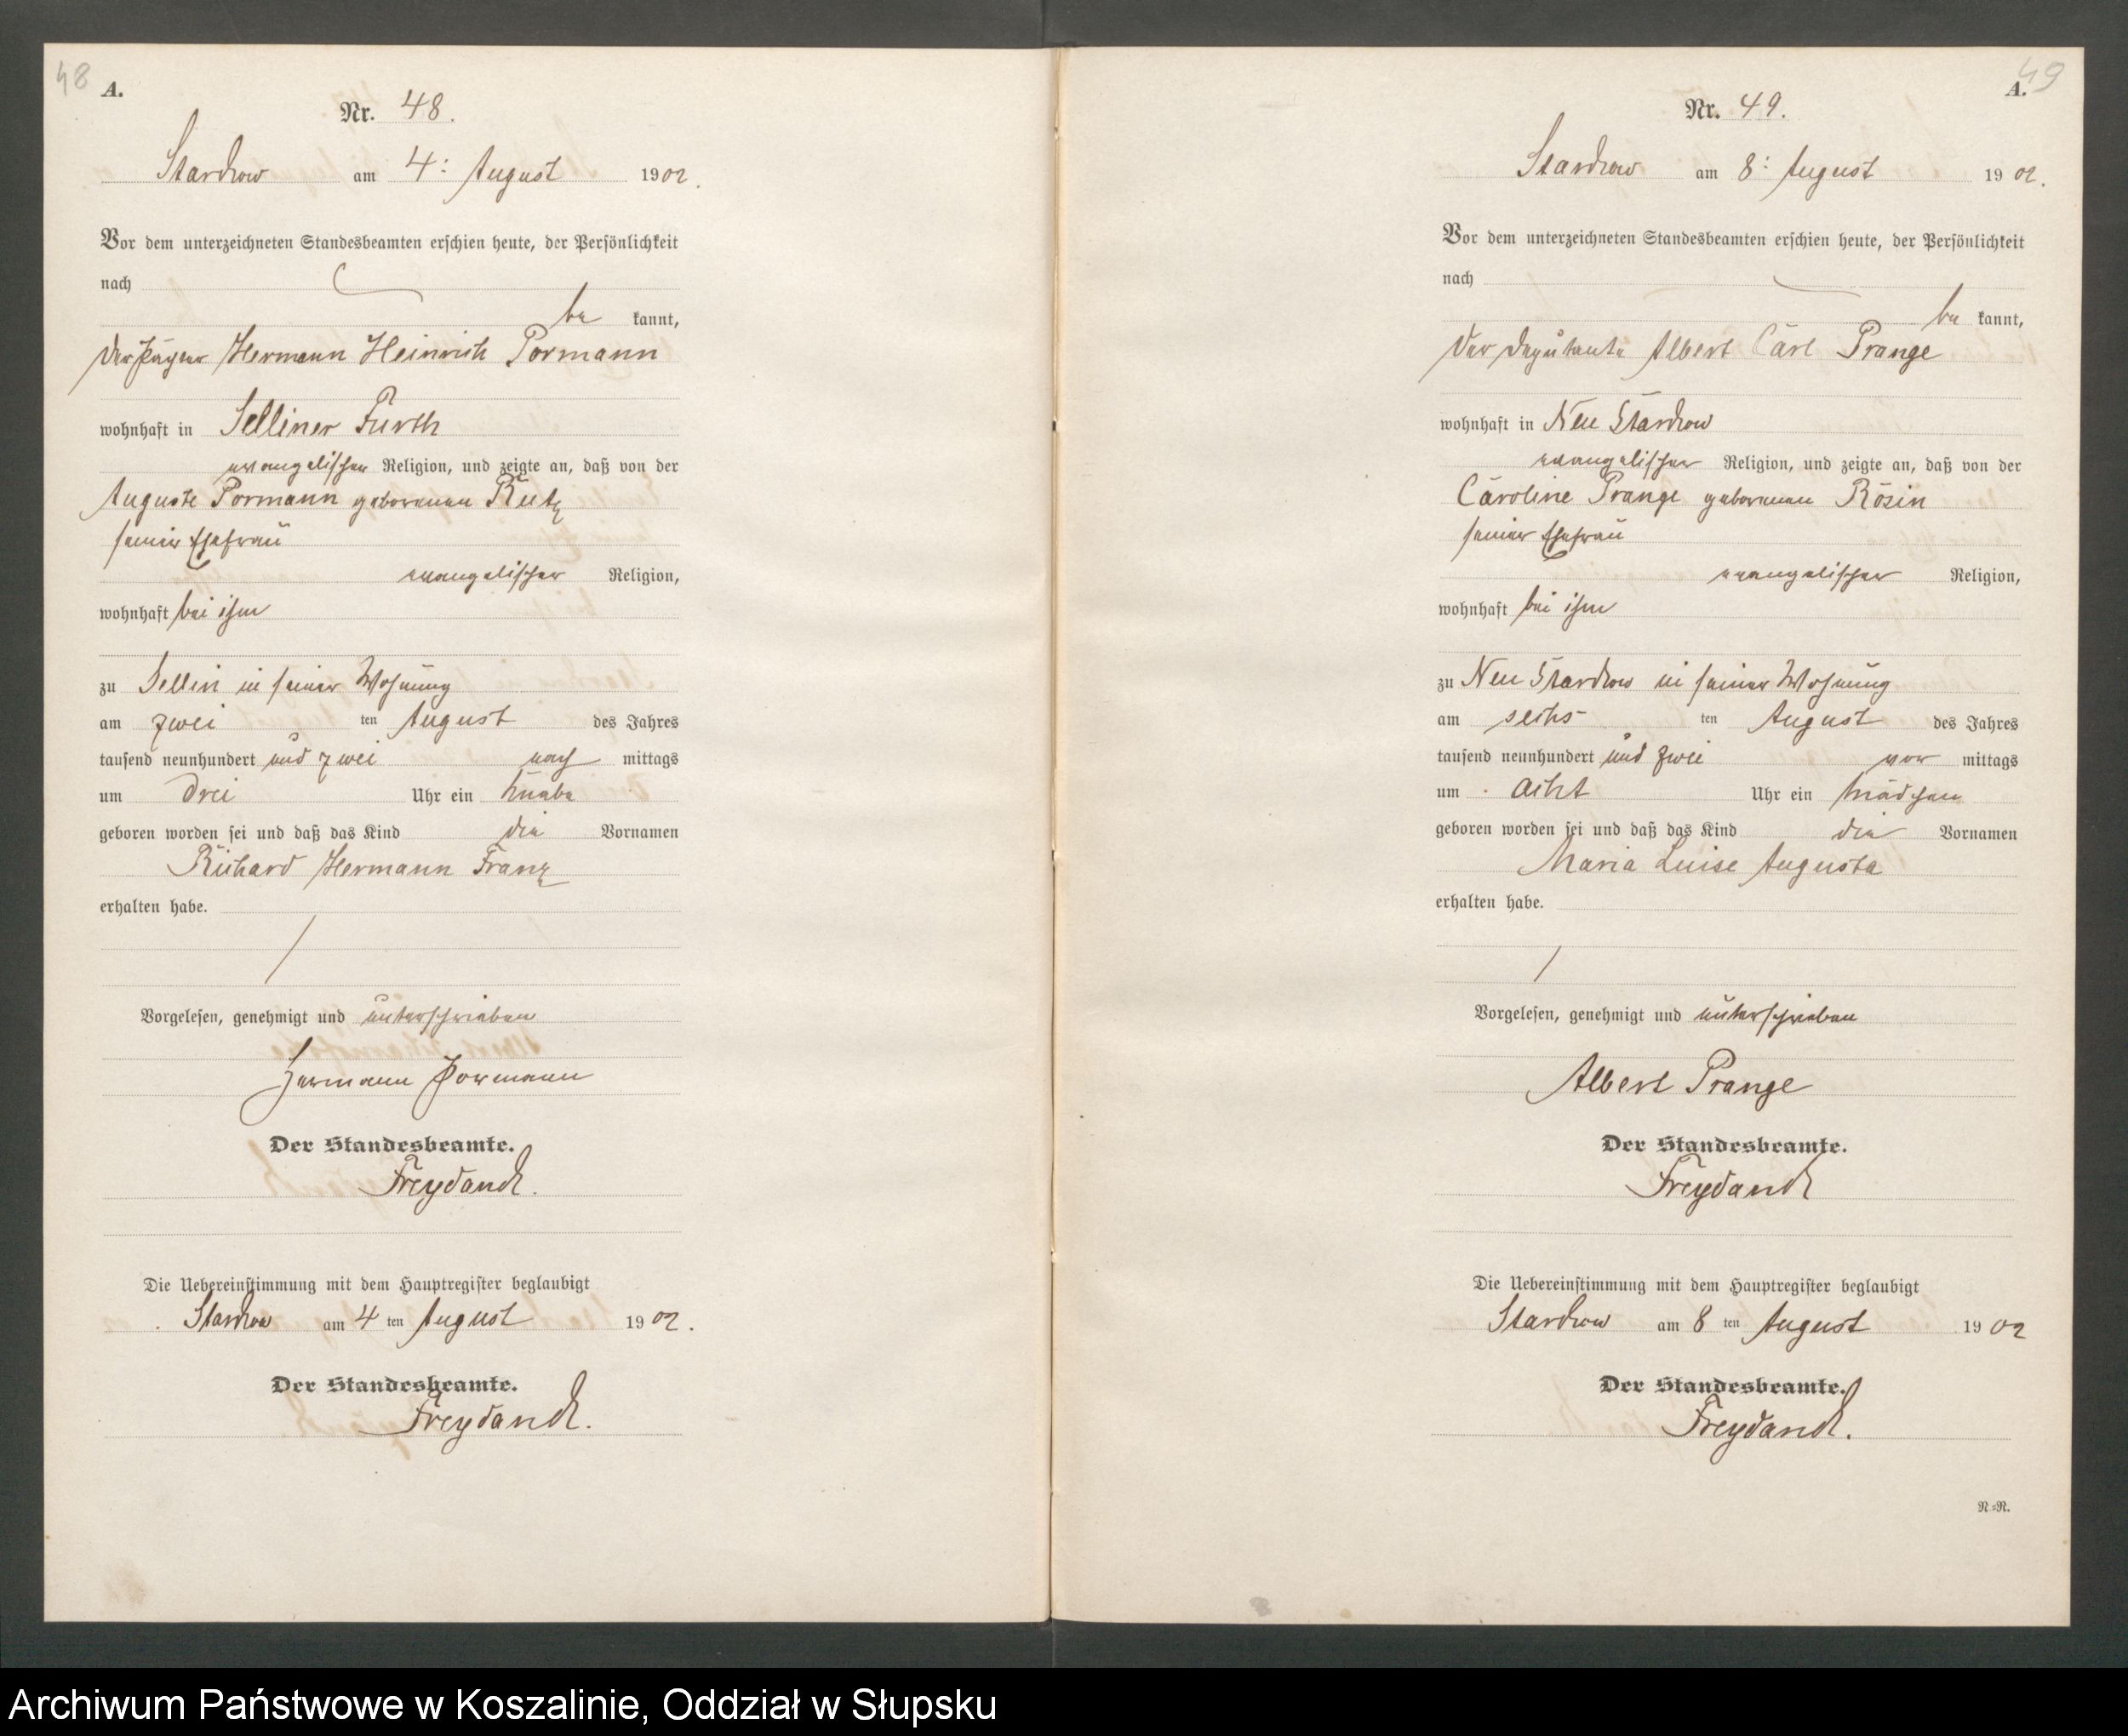 48
A.
Nr. 48.
Starkow am 4: August 1902.
Vor dem unterzeichneten Standesbeamten erschien heute, der Persönlichkeit
nach
be kannt,
der Jäger Hermann Heinrich Pormann
wohnhaft in Selliner Furth
evangelischer Religion, und zeigte an, daß von der
Auguste Pormann geborenen Rutz
seiner Ehefrau
evangelischer Religion,
wohnhaft bei ihm
zu Sellin in seiner Wohnung
am zwei ten August des Jahres
tausend neunhundert und zwei nach mittags
um drei Uhr ein Knabe
geboren worden sei und daß das Kind die Vornamen
Richard Hermann Franz
erhalten habe.
Vorgelesen, genehmigt und unterschrieben
Hermann Pormann
Der Standesbeamte.
Freydanck.
Die Uebereinstimmung mit dem Hauptregister beglaubigt
Starkow am 4 ten August 1902.
Der Standesbeamte.
Freydanck.
49
A.
Nr. 49.
Starkow am 8: August 1902.
Vor dem unterzeichneten Standesbeamten erschien heute, der Persönlichkeit
nach
be kannt,
der Deputante Albert Carl Prange
wohnhaft in Neu Starkow
evangelischer Religion, und zeigte an, daß von der
Caroline Prange geborenen Rösin
seiner Ehefrau
evangelischer Religion,
wohnhaft bei ihm
zu Neu Starkow in seiner Wohnung
am sechs ten August des Jahres
tausend neunhundert und zwei vor mittags
um acht Uhr ein Mädchen
geboren worden sei und daß das Kind die Vornamen
Maria Luise Augusta
erhalten habe.
Vorgelesen, genehmigt und unterschrieben
Albert Prange
Der Standesbeamte.
Freydanck
Die Uebereinstimmung mit dem Hauptregister beglaubigt
Starkow am 8 ten August 1902
Der Standesbeamte.
Freydanck.
N=N.
Archiwum Państwowe w Koszalinie, Oddział w Słupsku